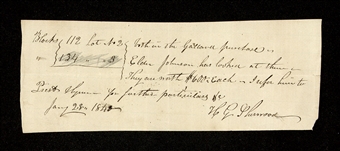 Blocks 112 Lot No 2 } Both in the Galland purchase..
" 134 " " 3 } Elder Johnson has looked at them
They are worth $600 Each - I refer him to
Prest. for further particulars &c
Jany 28th 1842 H. G. Sherwood